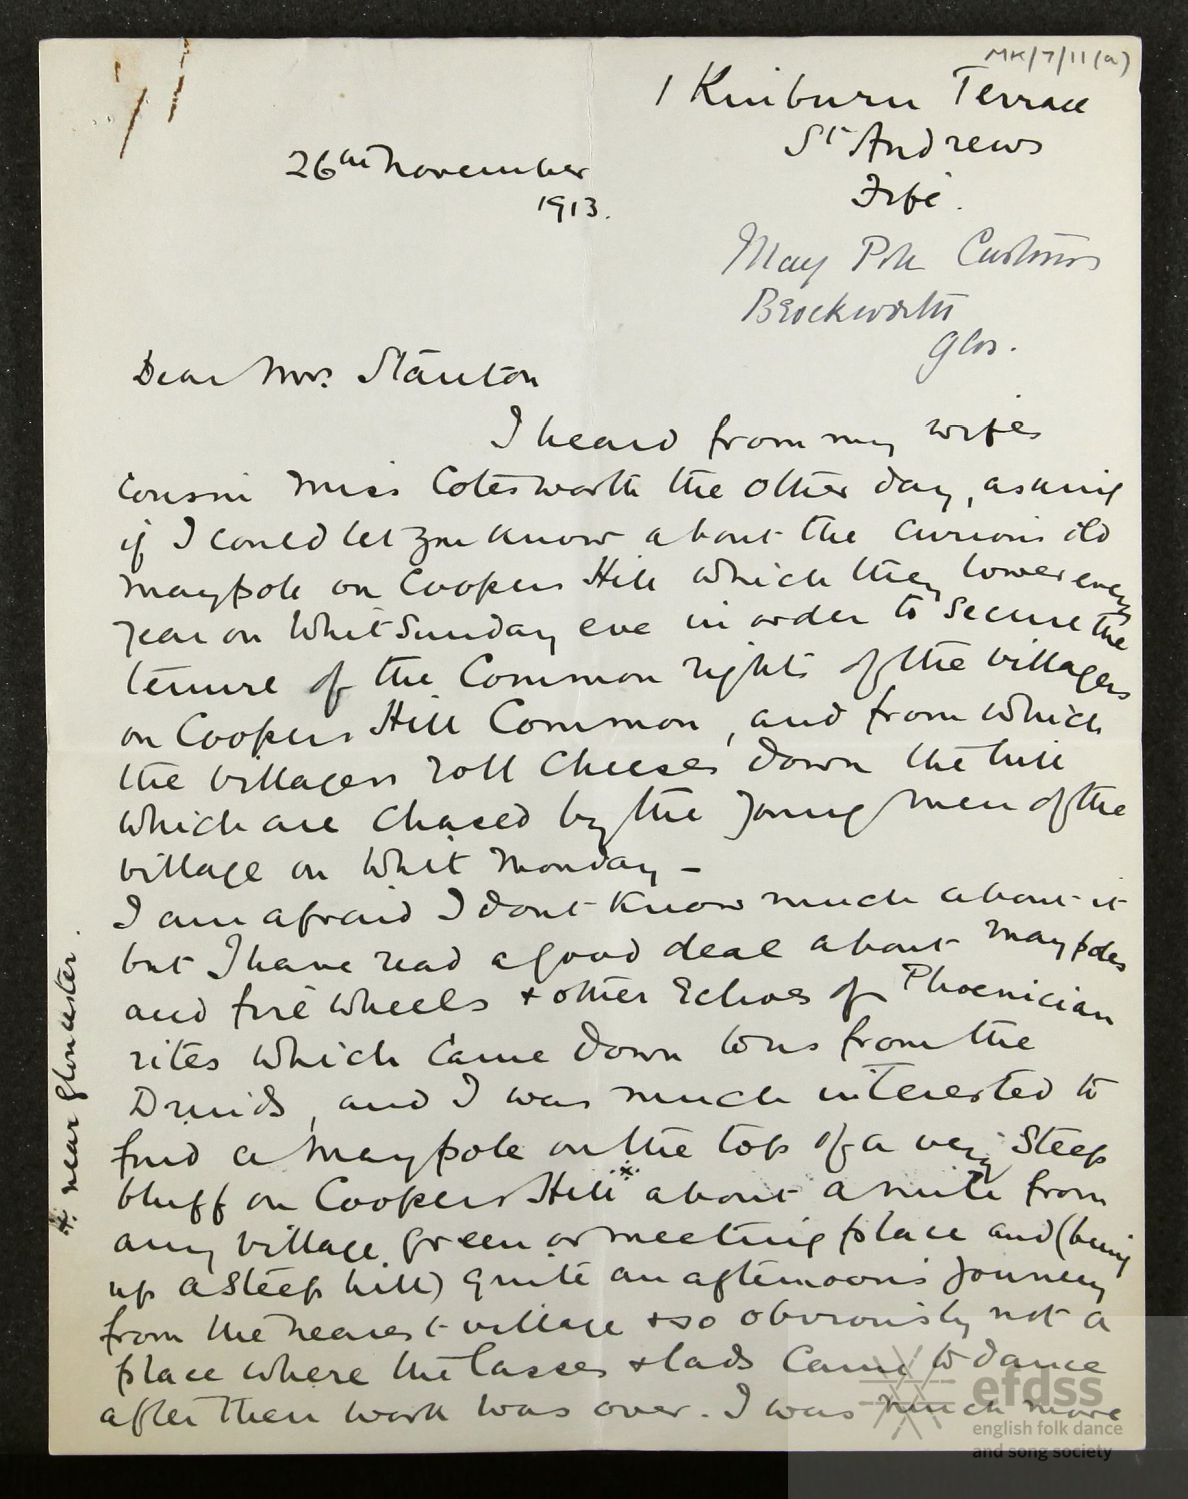 MK/7/11(a)
1 Kinburn Terrace
St Andrews
Fife.
26th November
1913.
May Pole Customs
Brockworth
Glos.
Dear Mrs. Stanton
I heard from my wifes
cousin Miss Cotesworth the other day, asking
if I could let you know about the curious old
maypole on Coopers Hill which they lower every
year on Whit Sunday eve in order to secure the
tenure of the Common rights of the villagers
on Coopers Hill Common, and from which
the villagers roll Cheeses down the hill
which are chased by the young men of the
village on Whit Monday -
I am afraid I dont know much about it
but I have read a good deal about maypoles
and fire wheels & other Echoes of Phoenician
rites which came down to us from the
Druids, and I was much interested to
find a maypole on the top of a very steep
bluff on Coopers Hill x about a mile from
any village green or meeting place and (being
up a steep hill) quite an afternoons journey
from the nearest village & so obviously not a
place where the lasses & lads came to dance
after their work was over. I was much more
x. near Gloucester.
efdss
english folk dance
and song society